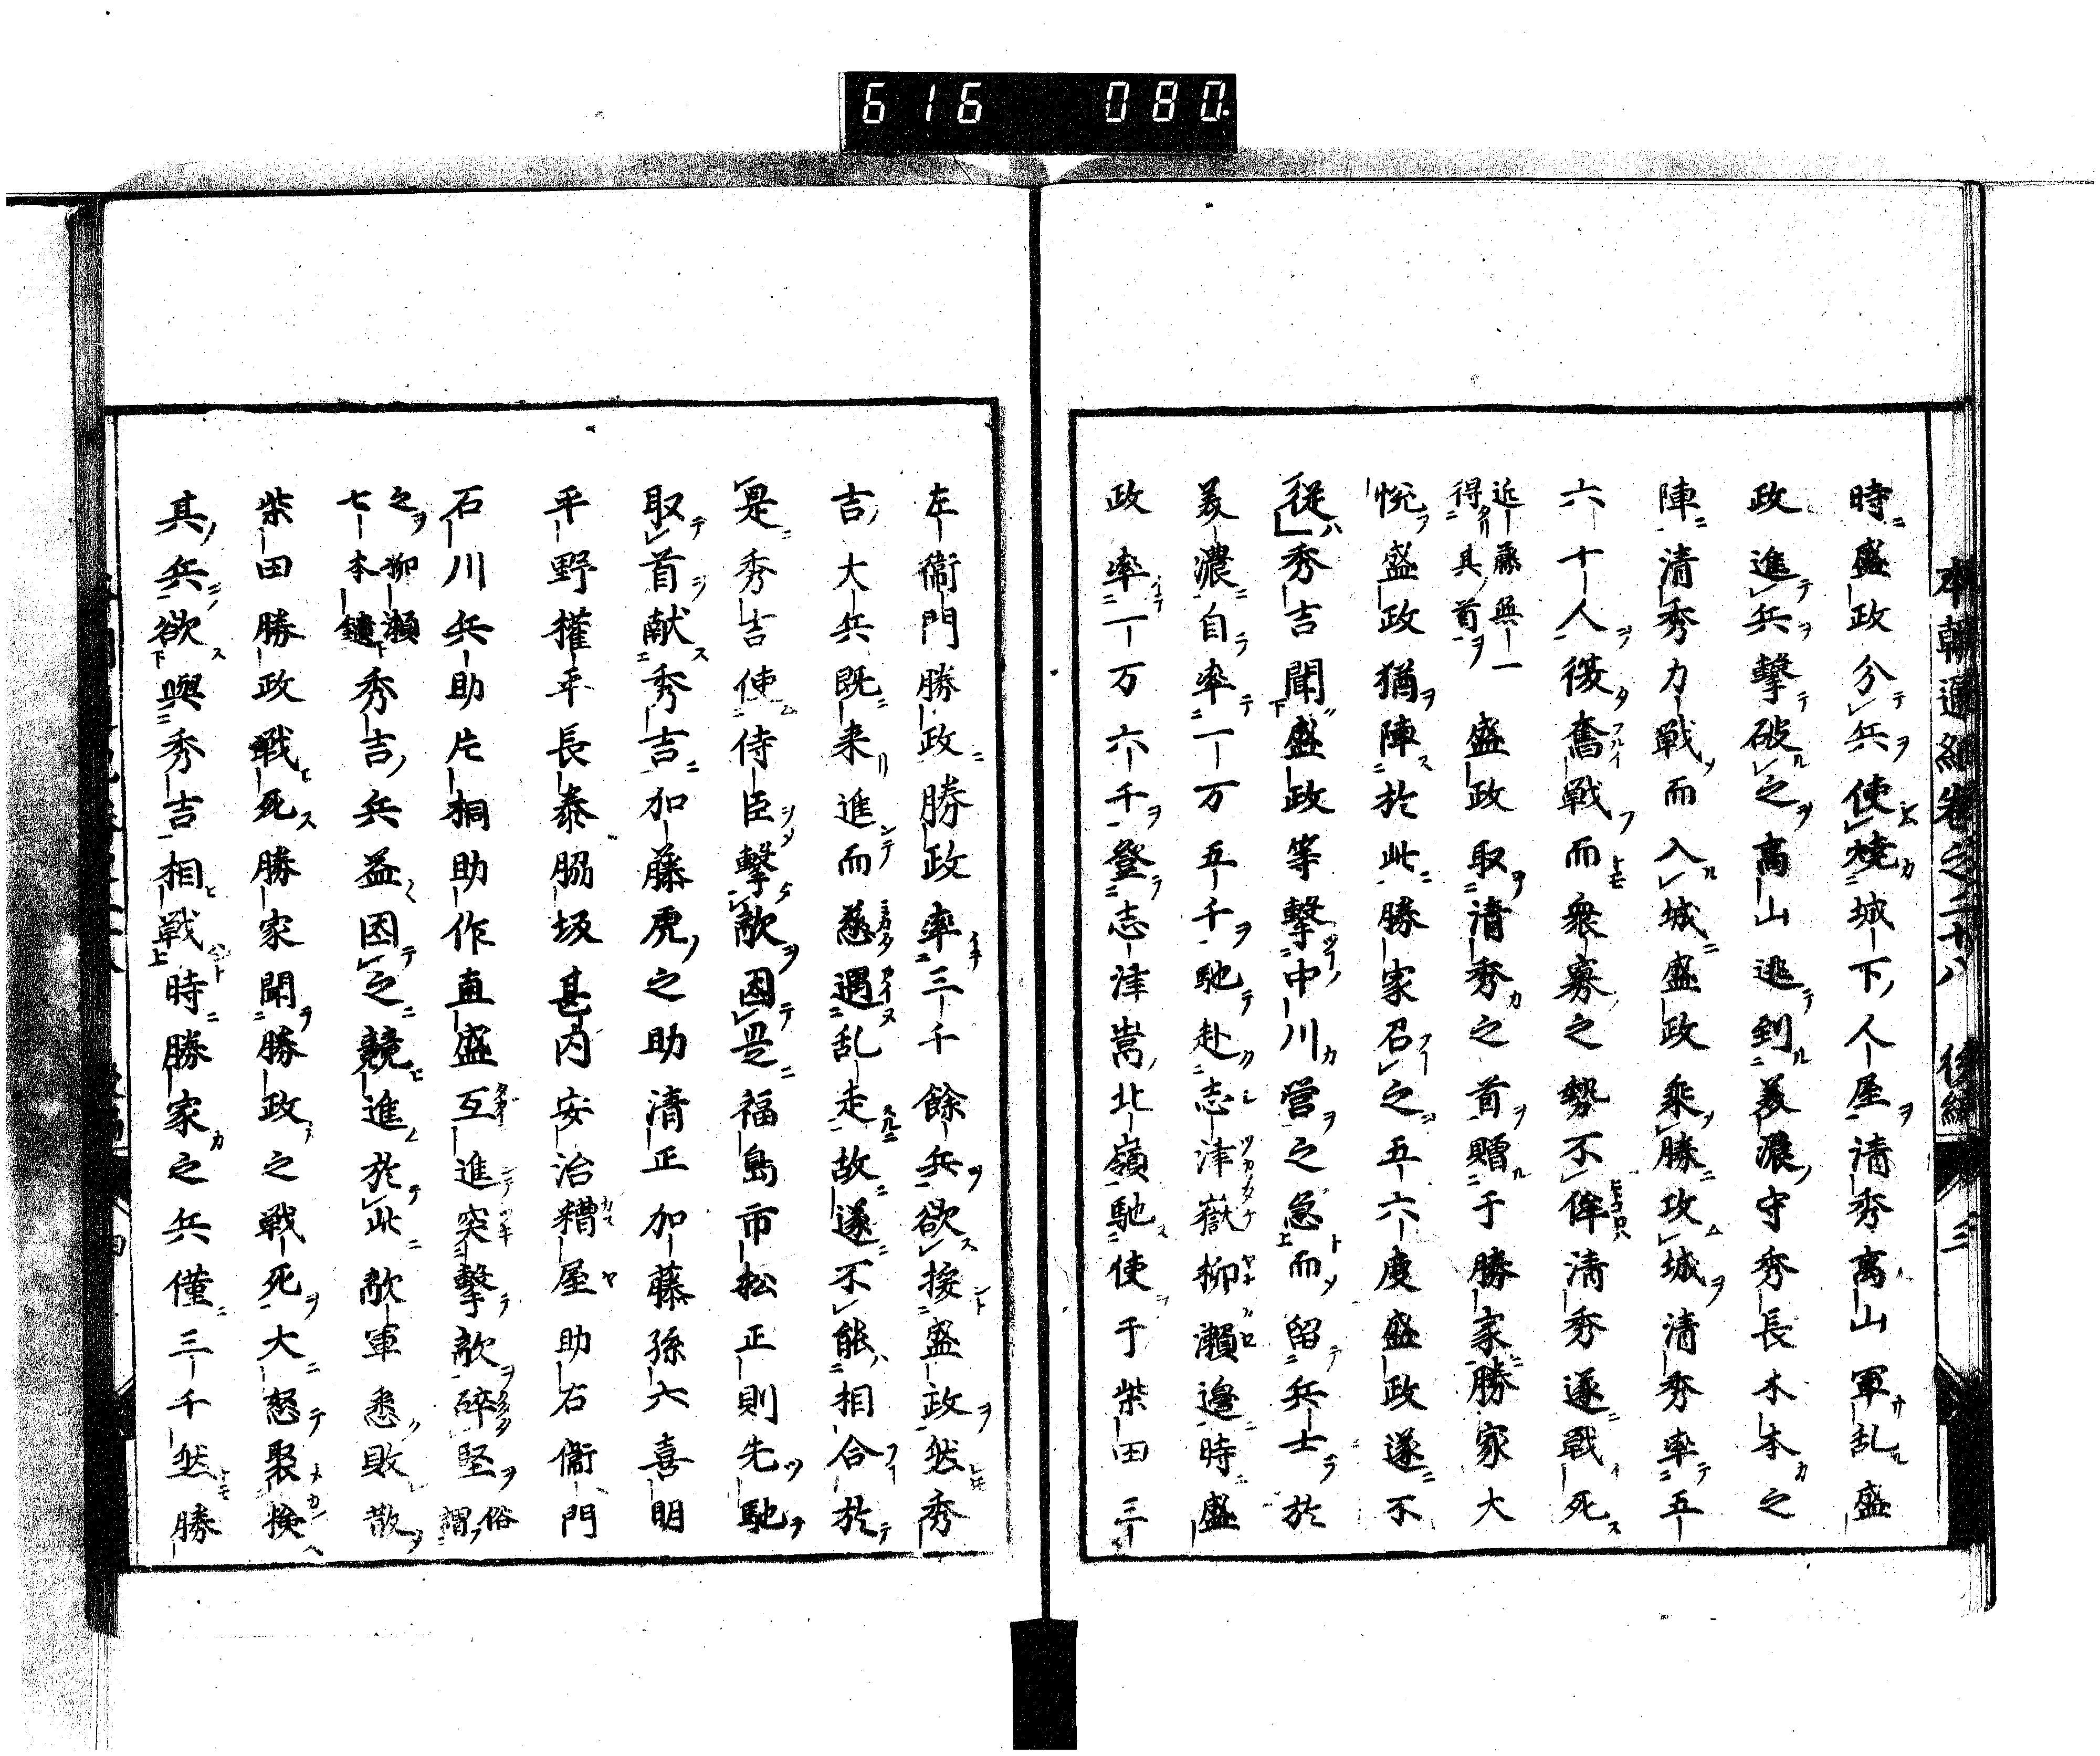 616 080
本朝通紀巻之二十八 後編 三
時盛政分兵使焼城下人屋清秀高山軍乱盛
政進兵撃破之高山逃到美濃守秀長木本之
陣清秀力戦而入城盛政乗勝攻城清秀率五
六十人復奮戦而衆寡之勢不侔清秀遂戦死
近藤與一
得其首
盛政取清秀之首贈于勝家勝家大
悦盛政猶陣於此勝家召之五六度盛政遂不
従秀吉聞盛政等撃中川営之急而留兵士於
美濃自率一万五千馳赴志津嶽柳瀬邉時盛
政率一万六千登志津嵩北嶺馳使于柴田三
左衛門勝政勝政率三千餘兵欲援盛政然秀
吉大兵既来進而慈遇乱走故遂不能相合於
是秀吉使侍臣撃敵因是福島市松正則先馳
取首献秀吉加藤虎之助清正加藤孫六喜明
平野権平長泰脇坂甚内安治糟屋助右衛門
石川兵助片桐助作直盛互進突撃敵碎堅
俗謂
之柳瀬
七本鑓
秀吉兵益因之競進於此敵軍悉敗散
柴田勝政戦死勝家聞勝政之戦死大怒聚検
其兵欲與秀吉相戦時勝家之兵僅三千然勝